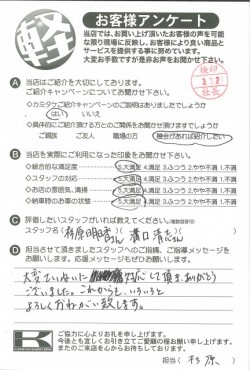 軽
お客様アンケート
当店では、お買い上げ頂いたお客様の声を可能な限り現場に反映し、お客様により良い商品とサービスを提供する事に努めています。
大変お手数ですが是非お声をお聞かせ下さい。
検印
社長
A 当店はご紹介を大切にしております。
ご紹介キャンペーンについてお聞かせ下さい。
◇カミタケご紹介キャンペーンのご説明はありましたでしょうか
はい いいえ
◇具体的にご紹介頂ける方とのご関係をお聞かせ頂けますでしょうか
ご親族 ご友人 職場の方 機会があれば紹介したい
B 当店を実際にご利用になった印象をお聞かせ下さい。
◇総合的な満足度 5.大満足 4.満足 3.ふつう 2.やや不満 1.不満
◇スタッフの対応 5.大満足 4.満足 3.ふつう 2.やや不満 1.不満
◇お店の雰囲気、清掃 5.大満足 4.満足 3.ふつう 2.やや不満 1.不満
◇納車時のお車の状態 5.大満足 4.満足 3.ふつう 2.やや不満 1.不満
C 評価したいスタッフがいれば教えてください。(複数回答可)
スタッフ名(
D 担当させて頂きましたスタッフへのご指摘、ご指導メッセージをお願いします。応援メッセージもぜひお願いします。
大変ていねいに 対応して頂きありがとう
ございました。これからも、いろいろと
よろしくおねがい致します。
K
ご協力に心よりお礼を申し上げます。
今後とも宜しくお引き立てご愛顧の程お願い申し上げます。
またのご来店を心からお待ちしております。
担当( 杉原 )